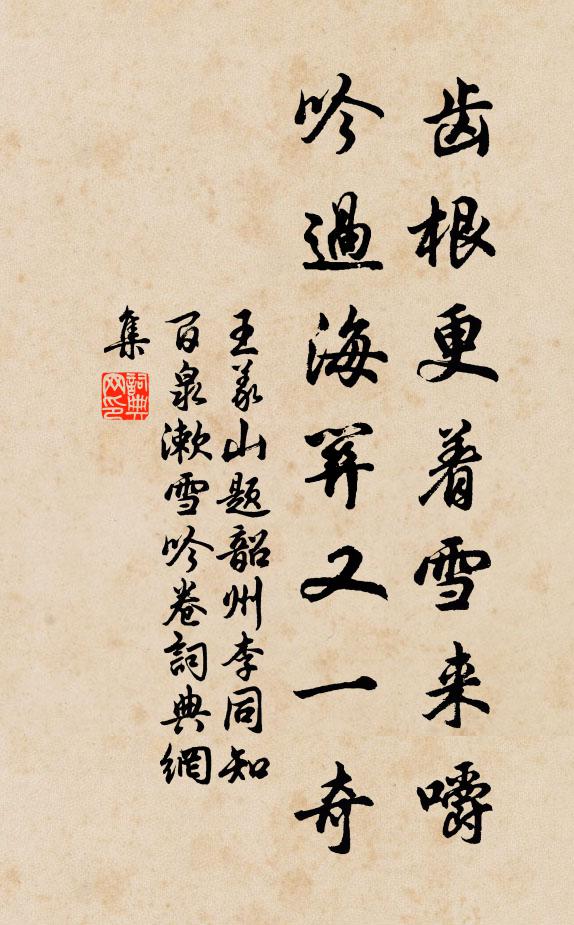 齿根更着雪来嚼
吟過海關又一奇
王义山题韶州李同知
百泉漱雪吟卷詞典網
集
詞典
网印